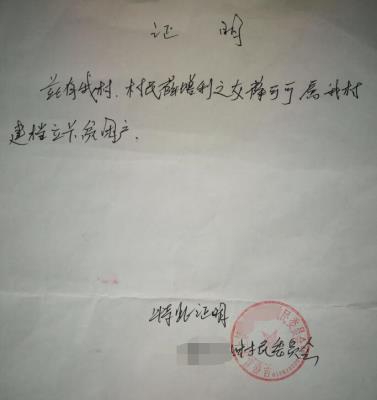 证明
兹有我村、村民薛增利之女薛可可属我村
建档立卡贫困户.
特此证明
村民委员会